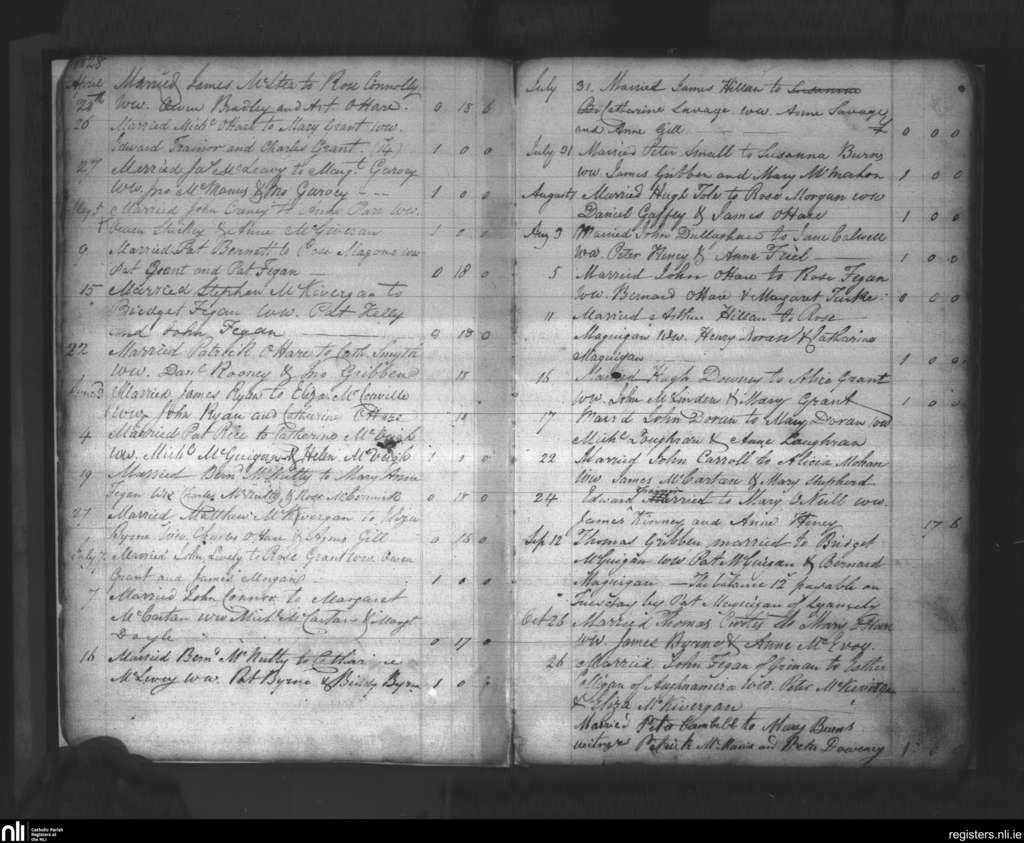 1828
April Married James McAtee to Rose Connolly
24th Ww. Owen Bradley and Art OHare. 0 18 6
26 Married Michl OHare to Mary Grant ww.
Edward Trainor and Charles Grant. (14) 1 0 0
27 Married Jas McLeavy to Margt Garvey
Ww. Jno McManus & Jno Garvey -- 1 0 0
May 5 Married John to Anne Ww.
Owen & Anne McGuigan 1 0 0
9 Married Pat Bennett to Rose ww
Pat Grant and Pat Fegan — 0 18 0
15 Married Stephen McKivergan to
Bridget Fegan ww. Pat Kelly
and John Fegan — 0 18 0
22 Married Patrick OHare to Cath. Smyth
Ww. Danl Rooney & Jno Gribben 18
June 3 Married James Ryan to Eliza McConville
Ww. John Ryan and Catherine OHare 18
4 Married Pat Rice to Catherine McVeigh
Ww. Michl McGuigan & Helen McVeigh 1 0 0
19 Married Bernd McNulty to Mary Anne
Fegan Ww Charles McNulty & Rose McCormick 0 18 0
27 Married Matthew McKivergan to Eliza
Byrne Ww. Charles OHare & Gill 0 18 0
July 2 Married John Lively to Rose Grant Ww. Owen
Grant and James Morgan — 1 0 0
7 Married John Connor to Margaret
McCartan ww Michl McCartan & Margt
Doyle 0 17 0
16 Married Bernd McNulty to Catharine
McLevey ww. Pat Byrne & Biddy Byrne 1 0
July 31. Married James Hillan to Susanna
Catherine Savage ww Anne Savage
and Anne Gill 0 0 0
July 31 Married Peter Small to Susanna Burns
ww James Gribben and Mary McMahon 1 0 0
August 1 Married Hugh Tole to Rose Morgan ww
Daniel Gaffey & James OHare 1 0 0
Aug 3 Married John Dullaghan to Jane Calwell
Ww. Peter Heney & Anne Friel — 1 0 0
5 Married John OHare to Rose Fegan
Ww. Bernard OHare & Margaret 0 0 0
11 Married Arthur Hillan to Rose
Maguigan Ww. Henry Doran & Catharine
Maguigan 1 0 0
16 Married Hugh Downey to Alice Grant
Ww. John & Mary Grant 1 0 0
17 Marrd John Doran to Mary Doran ww
Michl Loughran & Anne Loughran
22 Married John Carroll to Alicia Mohan
Ww. James McCartan & Mary Shepherd
24 Edward Married to Mary ONeill ww.
James Kinney and Anne Heney 17 6
Sep. 12 Thomas Gribben married to Bridget
McGuigan ww Pat McGuigan & Bernard
Maguigan — The balance 12 payable on
Tuesday by Pat Maguigan of
Oct 26 Married Thomas to Mary OHare
ww James Byrne & Anne McEvoy.
26 Married John Fegan of to Esther
of ww. Peter McKivergan
& Eliza McKivergan
Married Peter Cambell to Mary Burns
Patrick McManus and Peter Downey 1
nli
Catholic Parish
Registers at
the NLI
registers.nli.ie